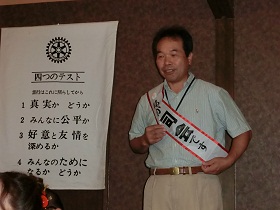 四つのテスト
言行はこれに照らしてから
1 真実か どうか
2 みんなに 公平か
3 好意と友情を
深めるか
4 みんなのために
なるか どうか